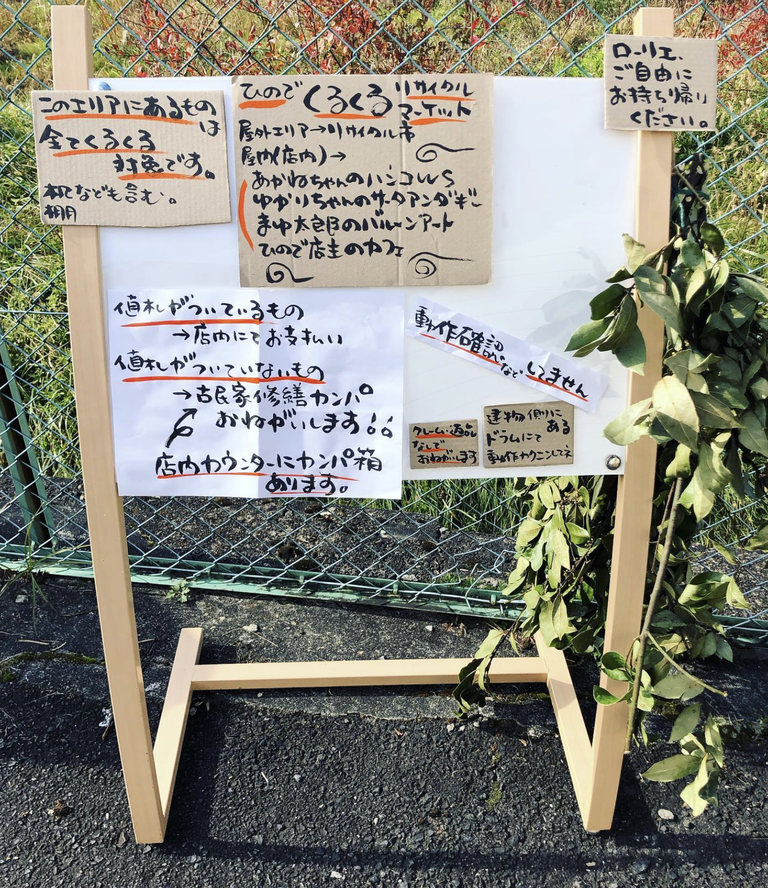 このエリアにあるものは
全てくるくる
対象です。
本なども含む。
棚
ひのでくるくるリサイクルマーケット
屋外エリア→リサイクル市
屋内(店内)→
あかねちゃんのハンコLIVE
ゆかりちゃんのサータアンダギー
まゆ太郎のバルーンアート
ひので店主のカフェ
ローリエ、
ご自由に
お持ち帰り
ください。
値札がついているもの
→店内にてお支払い
値札がついていないもの
→古民家修繕カンパ
おねがいします!!
店内カウンターにカンパ箱
あります。
動作確認などしてません
クレーム・返品
なしで
おねがいします
建物側に
ある
ドラムにて
動作カクニンしてネ